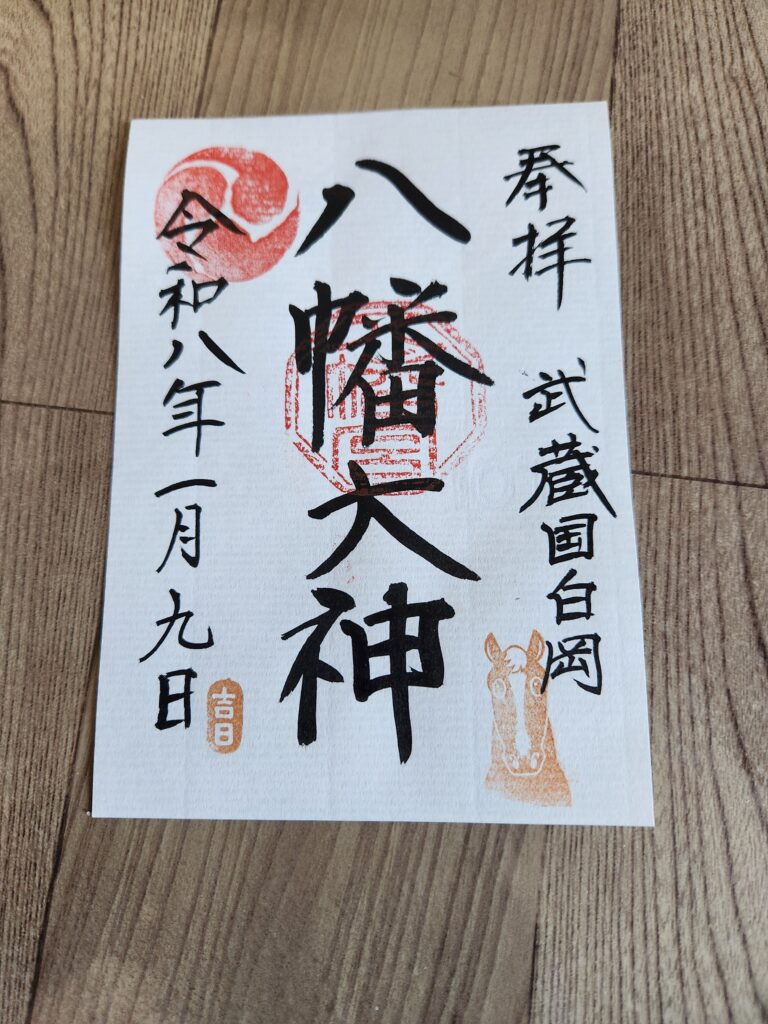 奉拝 武蔵国白岡
八幡大神
令和八年一月九日
吉日